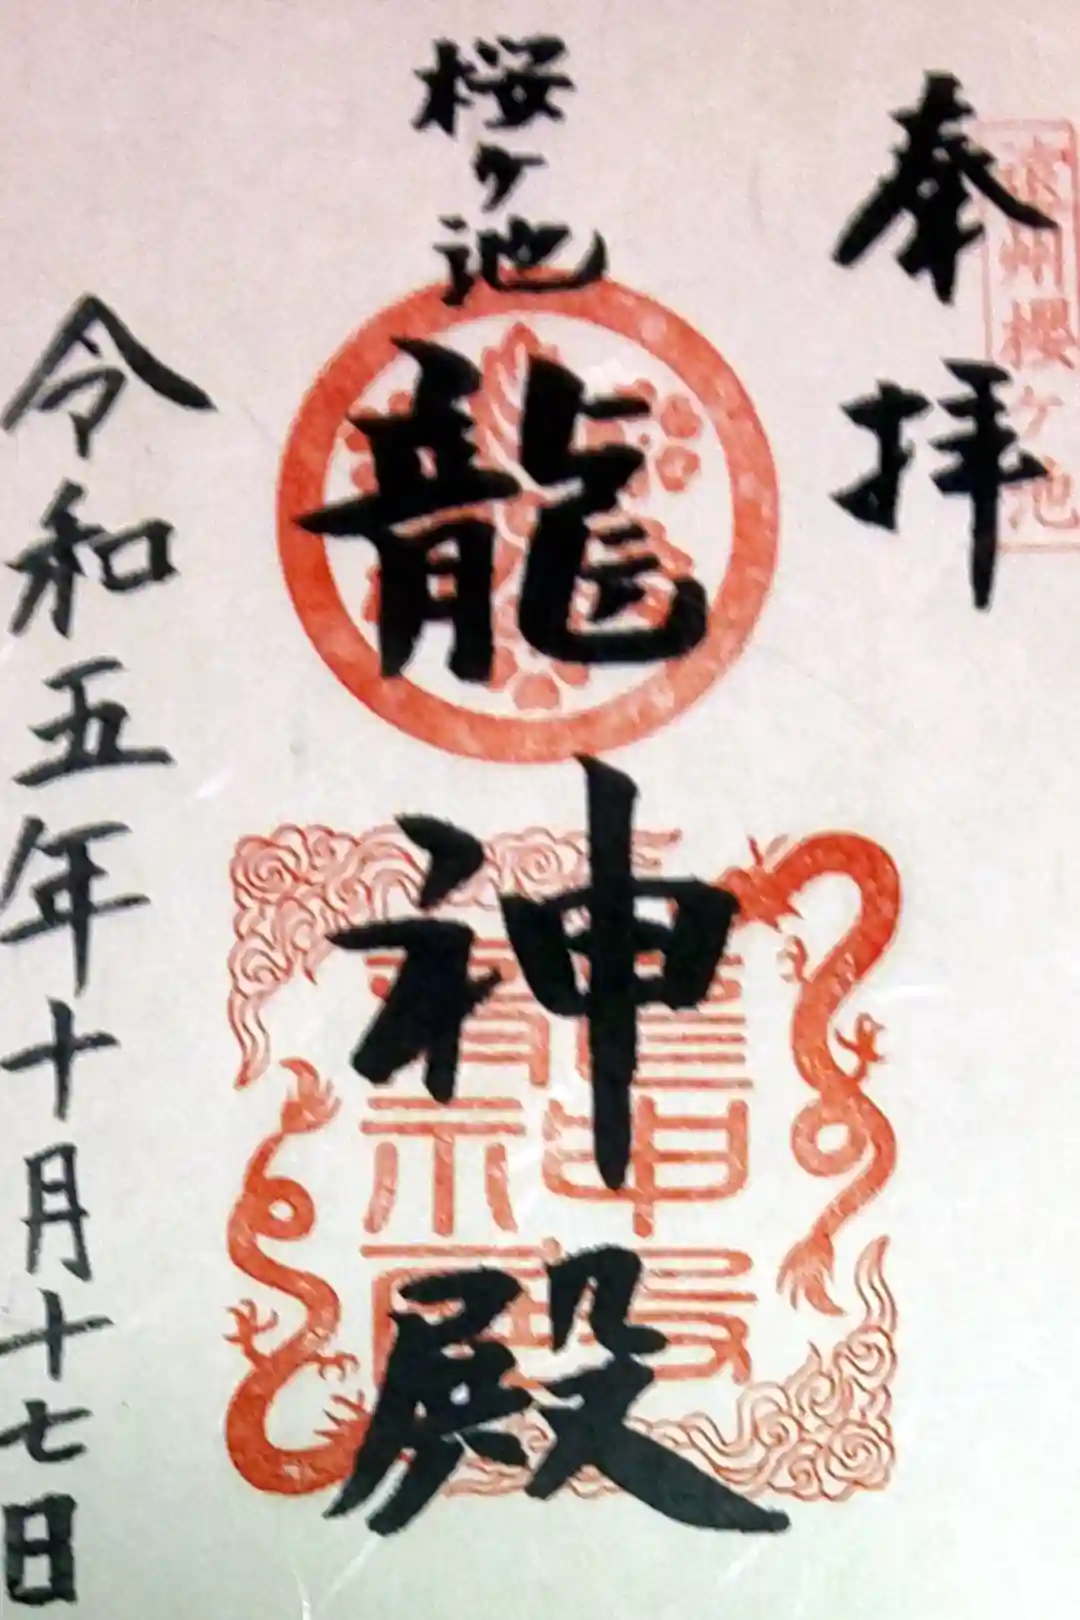 奉拝
州櫻ケ池
桜ヶ池
龍神殿
令和五年十月十七日